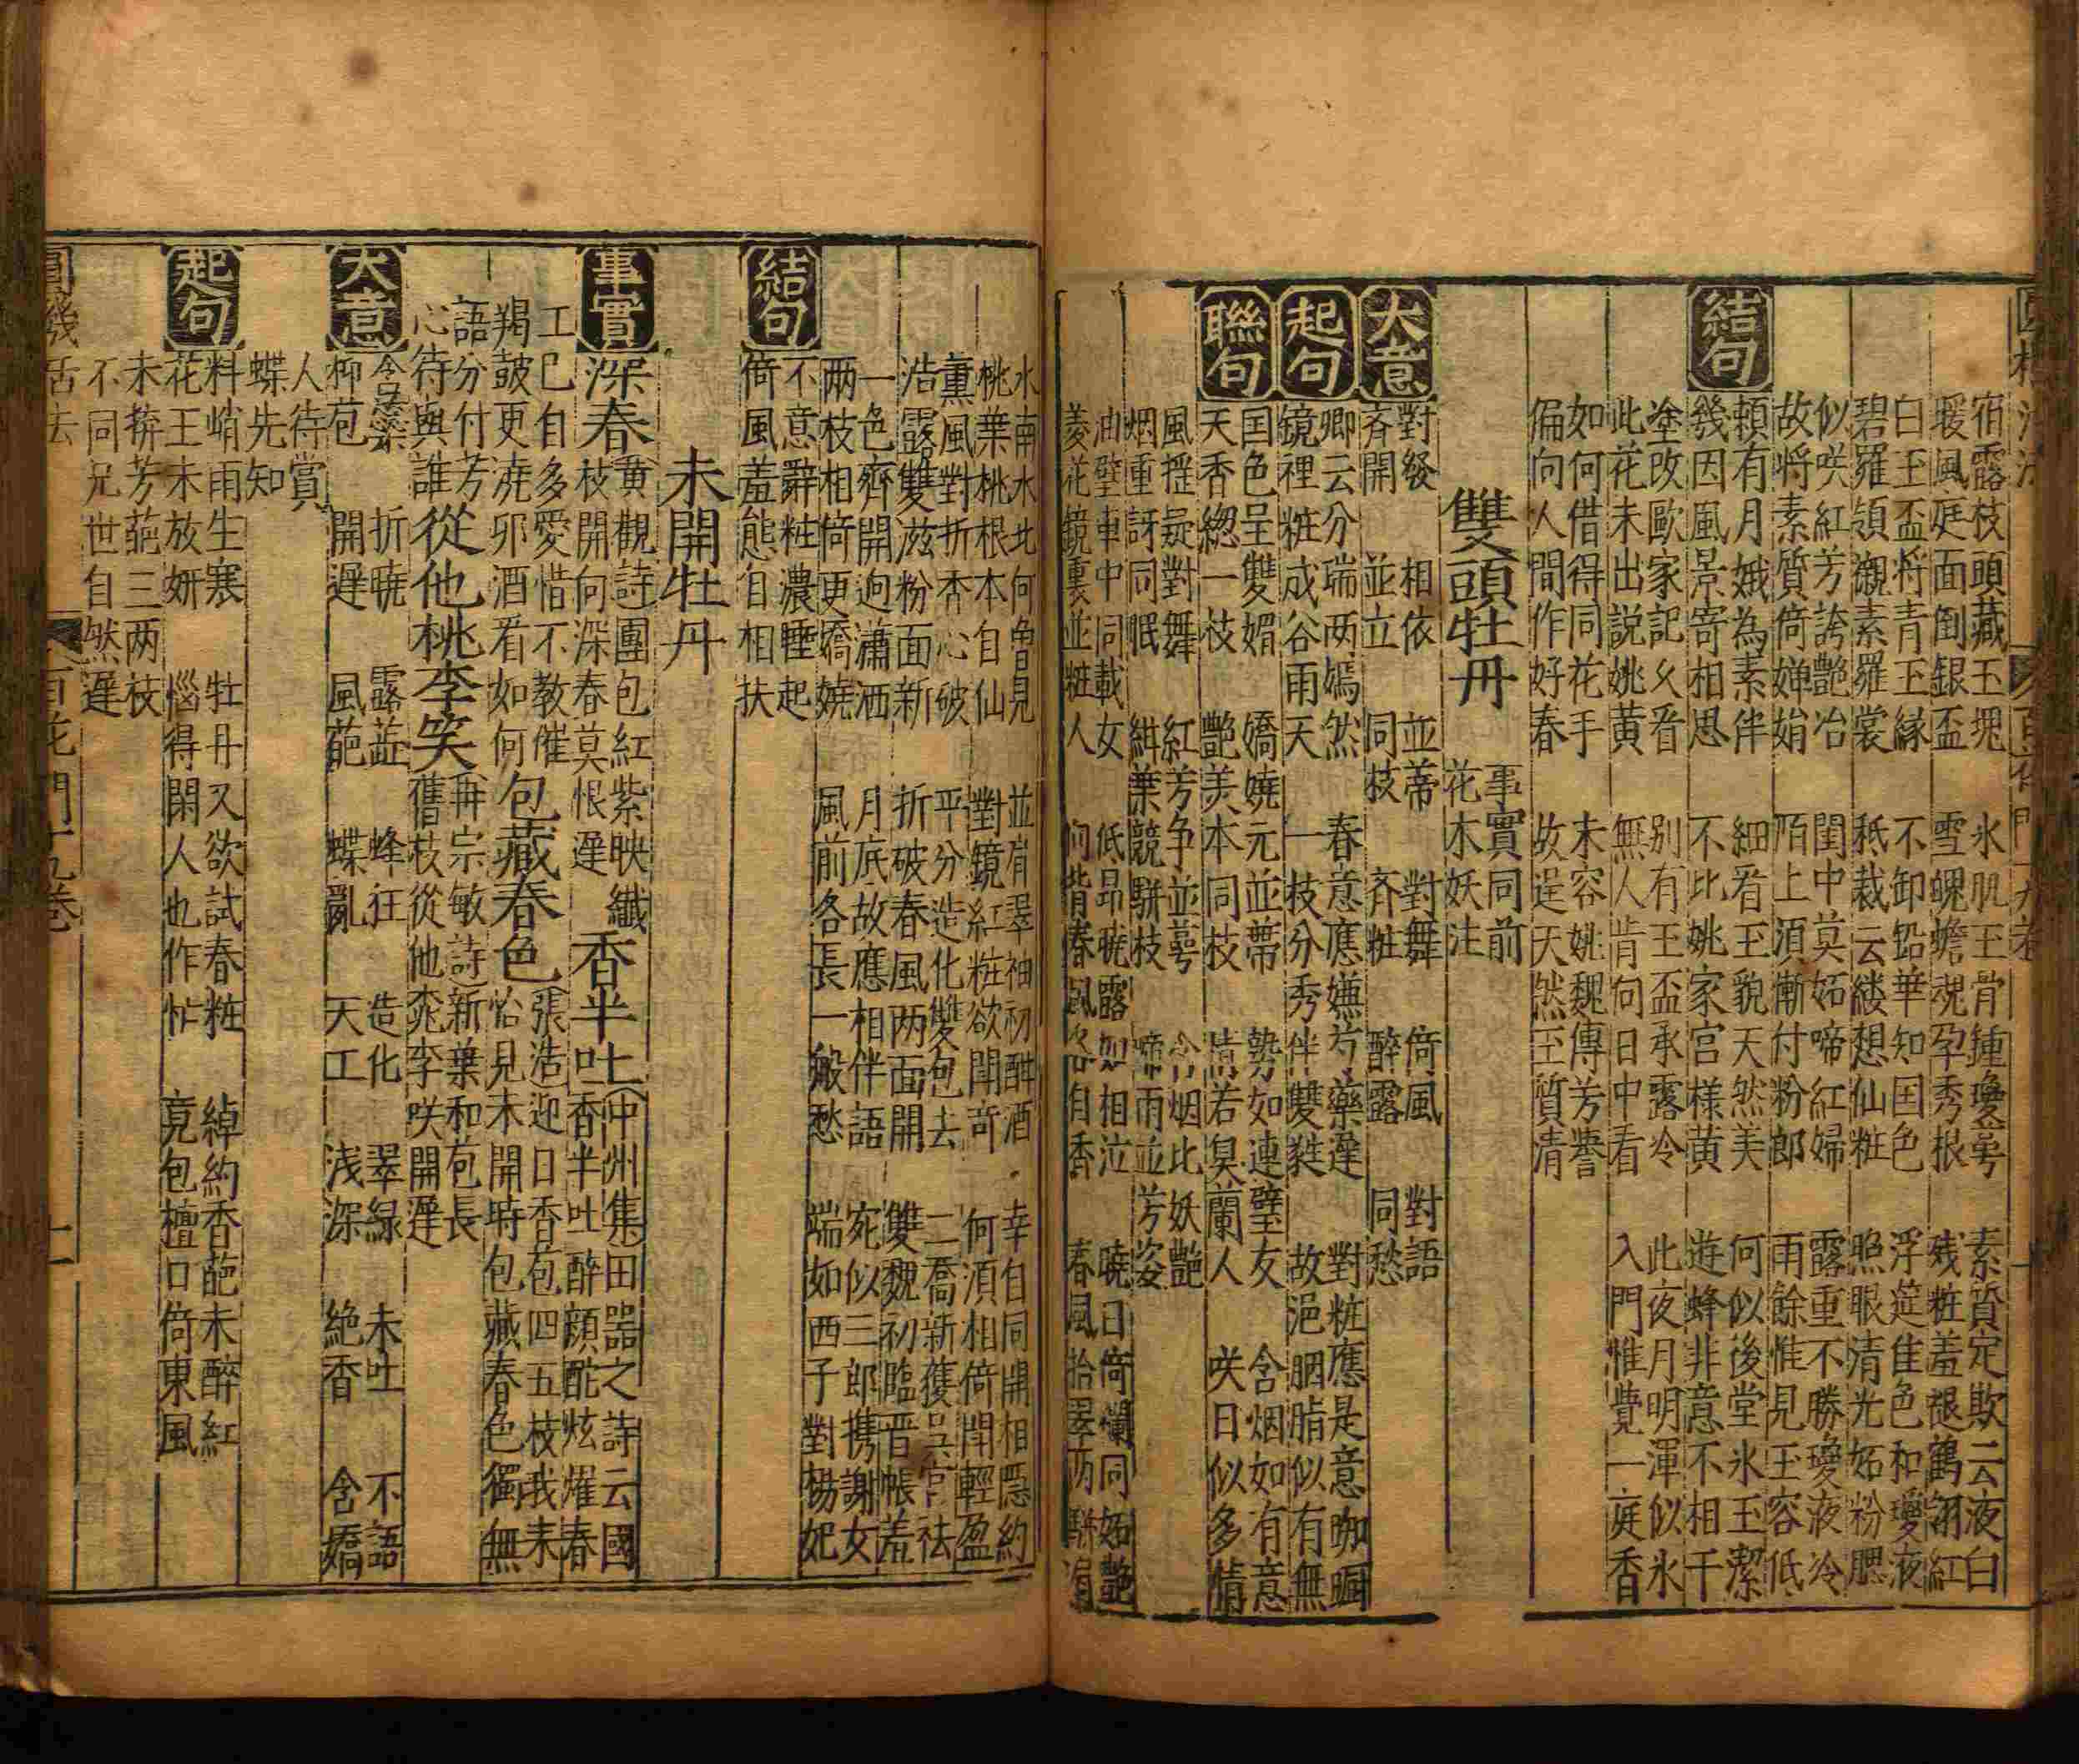 宿露枝頭藏玉塊 氷肌玉骨鍾瓊萼 素質定欺云夜白
暖風庭面倒銀盃 雪魄蟾魂孕秀根 残粧羞褪鶴翎紅
白玉盃将青玉縁 不卸鉛華知国色 浮筵隹色和瓊液
碧羅領襯素羅裳 秪裁云縷想仙粧 照眼清光妬粉腮
似咲紅芳誇艷冶 閨中莫妬啼紅婦 露重不勝瓊液冷
故将素質倚婵娟 陌上湏慚付粉郎 雨餘惟見玉容低
結句
頼有月娥為素伴 細看玉貌天然美 何似後堂氷玉潔
幾因風景寄相思 不比姚家宫様黄 遊蜂非意不相干
塗改歐家記乆看 别有玉盃承露冷 此夜月明渾似氷
此花未出説姚黄 無人肯向日中看 入門惟覺一庭香
如何借得同花手 未容姚魏傳芳譽
偏向人間作好春 故逞天然玉質清
雙頭牡丹 事實同前 花木妖注
大意
對發 相依 並蒂 對舞 倚風 對語
斉開 並立 同枝 斉粧 醉露 同愁
起句
卿云分瑞两嫣然 春意應嫌芍藥遲 對粧應是意
鏡裡粧成谷雨天 一枝分秀伴雙蕤 故浥胭脂似有無
聯句
国色呈雙媚 嬌嬈元並蒂 勢如連璧友 含烟如有意
天香緫一枝 艷美本同枝 情若臭蘭人 咲日似多情
風揺疑對舞 紅芳争並萼 含烟比妖艷
烟重訝同眠 緋葉競駢枝 啼雨並芳姿
油壁車中同載女 低昂暁露如相泣 暁日倚欄同妬艷
菱花鏡裏並粧人 向背春風各自香 春風拾翠两駢肩
水南水北何曽見 並肩翠袖初酣酒 幸自同開相隠約
桃葉桃根本自仙 對鏡紅粧欲閗竒 何湏相倚閗輕盈
薫風對折香心破 平分造化雙包去 二喬新獲呉宫祛
浩露雙滋粉面新 折破春風两面開 雙魏初臨晋帳羞
一色齊開逈瀟洒 月底故應相伴語 宛似三郎携謝女
两枝相倚更嬌嬈 風前各長一般愁 端如西子對楊妃
結句
不意辭粧濃睡起
倚風羞態自相扶
未開牡丹
事實
深春 黄觀詩團包紅紫映纎枝開向深春莫恨遲 香半吐 中州集田噐之詩云國香半吐醉顔酡炫燿春
工巳自多愛惜不教催羯皷更澆卯酒看如何 包藏春色 張浩迎日香苞四五枝我来恰見未開時包藏春色獨無
語分付芳心待與誰 從他桃李笑 再宗敏詩新葉和苞長舊枝從他桃李咲開遲
大意
含蘂 折暁 露蕋 蜂狂 造化 翠緑 未吐 不語
抑苞 開遲 風葩 蝶亂 天工 浅深 絶香 含嬌
人待賞
蝶先知
起句
料峭雨生寒 牡丹又欲試春粧 綽約香葩未醉紅
花王未放妍 惱得閑人也作忙 竟包檀口倚東風
未拚芳葩三两枝
不同兄世自然遲
百花門十九卷